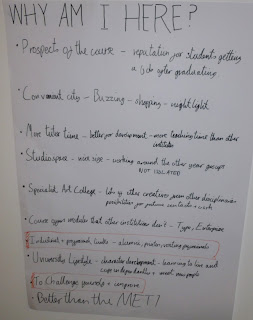 WHY AM I HERE?
• Prospects of the course - reputation for students getting
a job after graduating
• Convenient city - Buzzing - shopping - night light
• More tutor time - better for development - more teaching time than other
institutes
• Studio space - nice size - working around the other year groups
NOT ISOLATED
• Specialist Art College - lots of other creatives from other disciplines -
possibilities for future contacts + work
• Course offers modules that other institutions don't - Type, Enterprise
• Industrial + professional links - alumnis, printers, working professionals
• University Lifestyle - character development - learning to live and
cope independently + meet new people
• To Challenge yourself + compete
• Better than the MET!